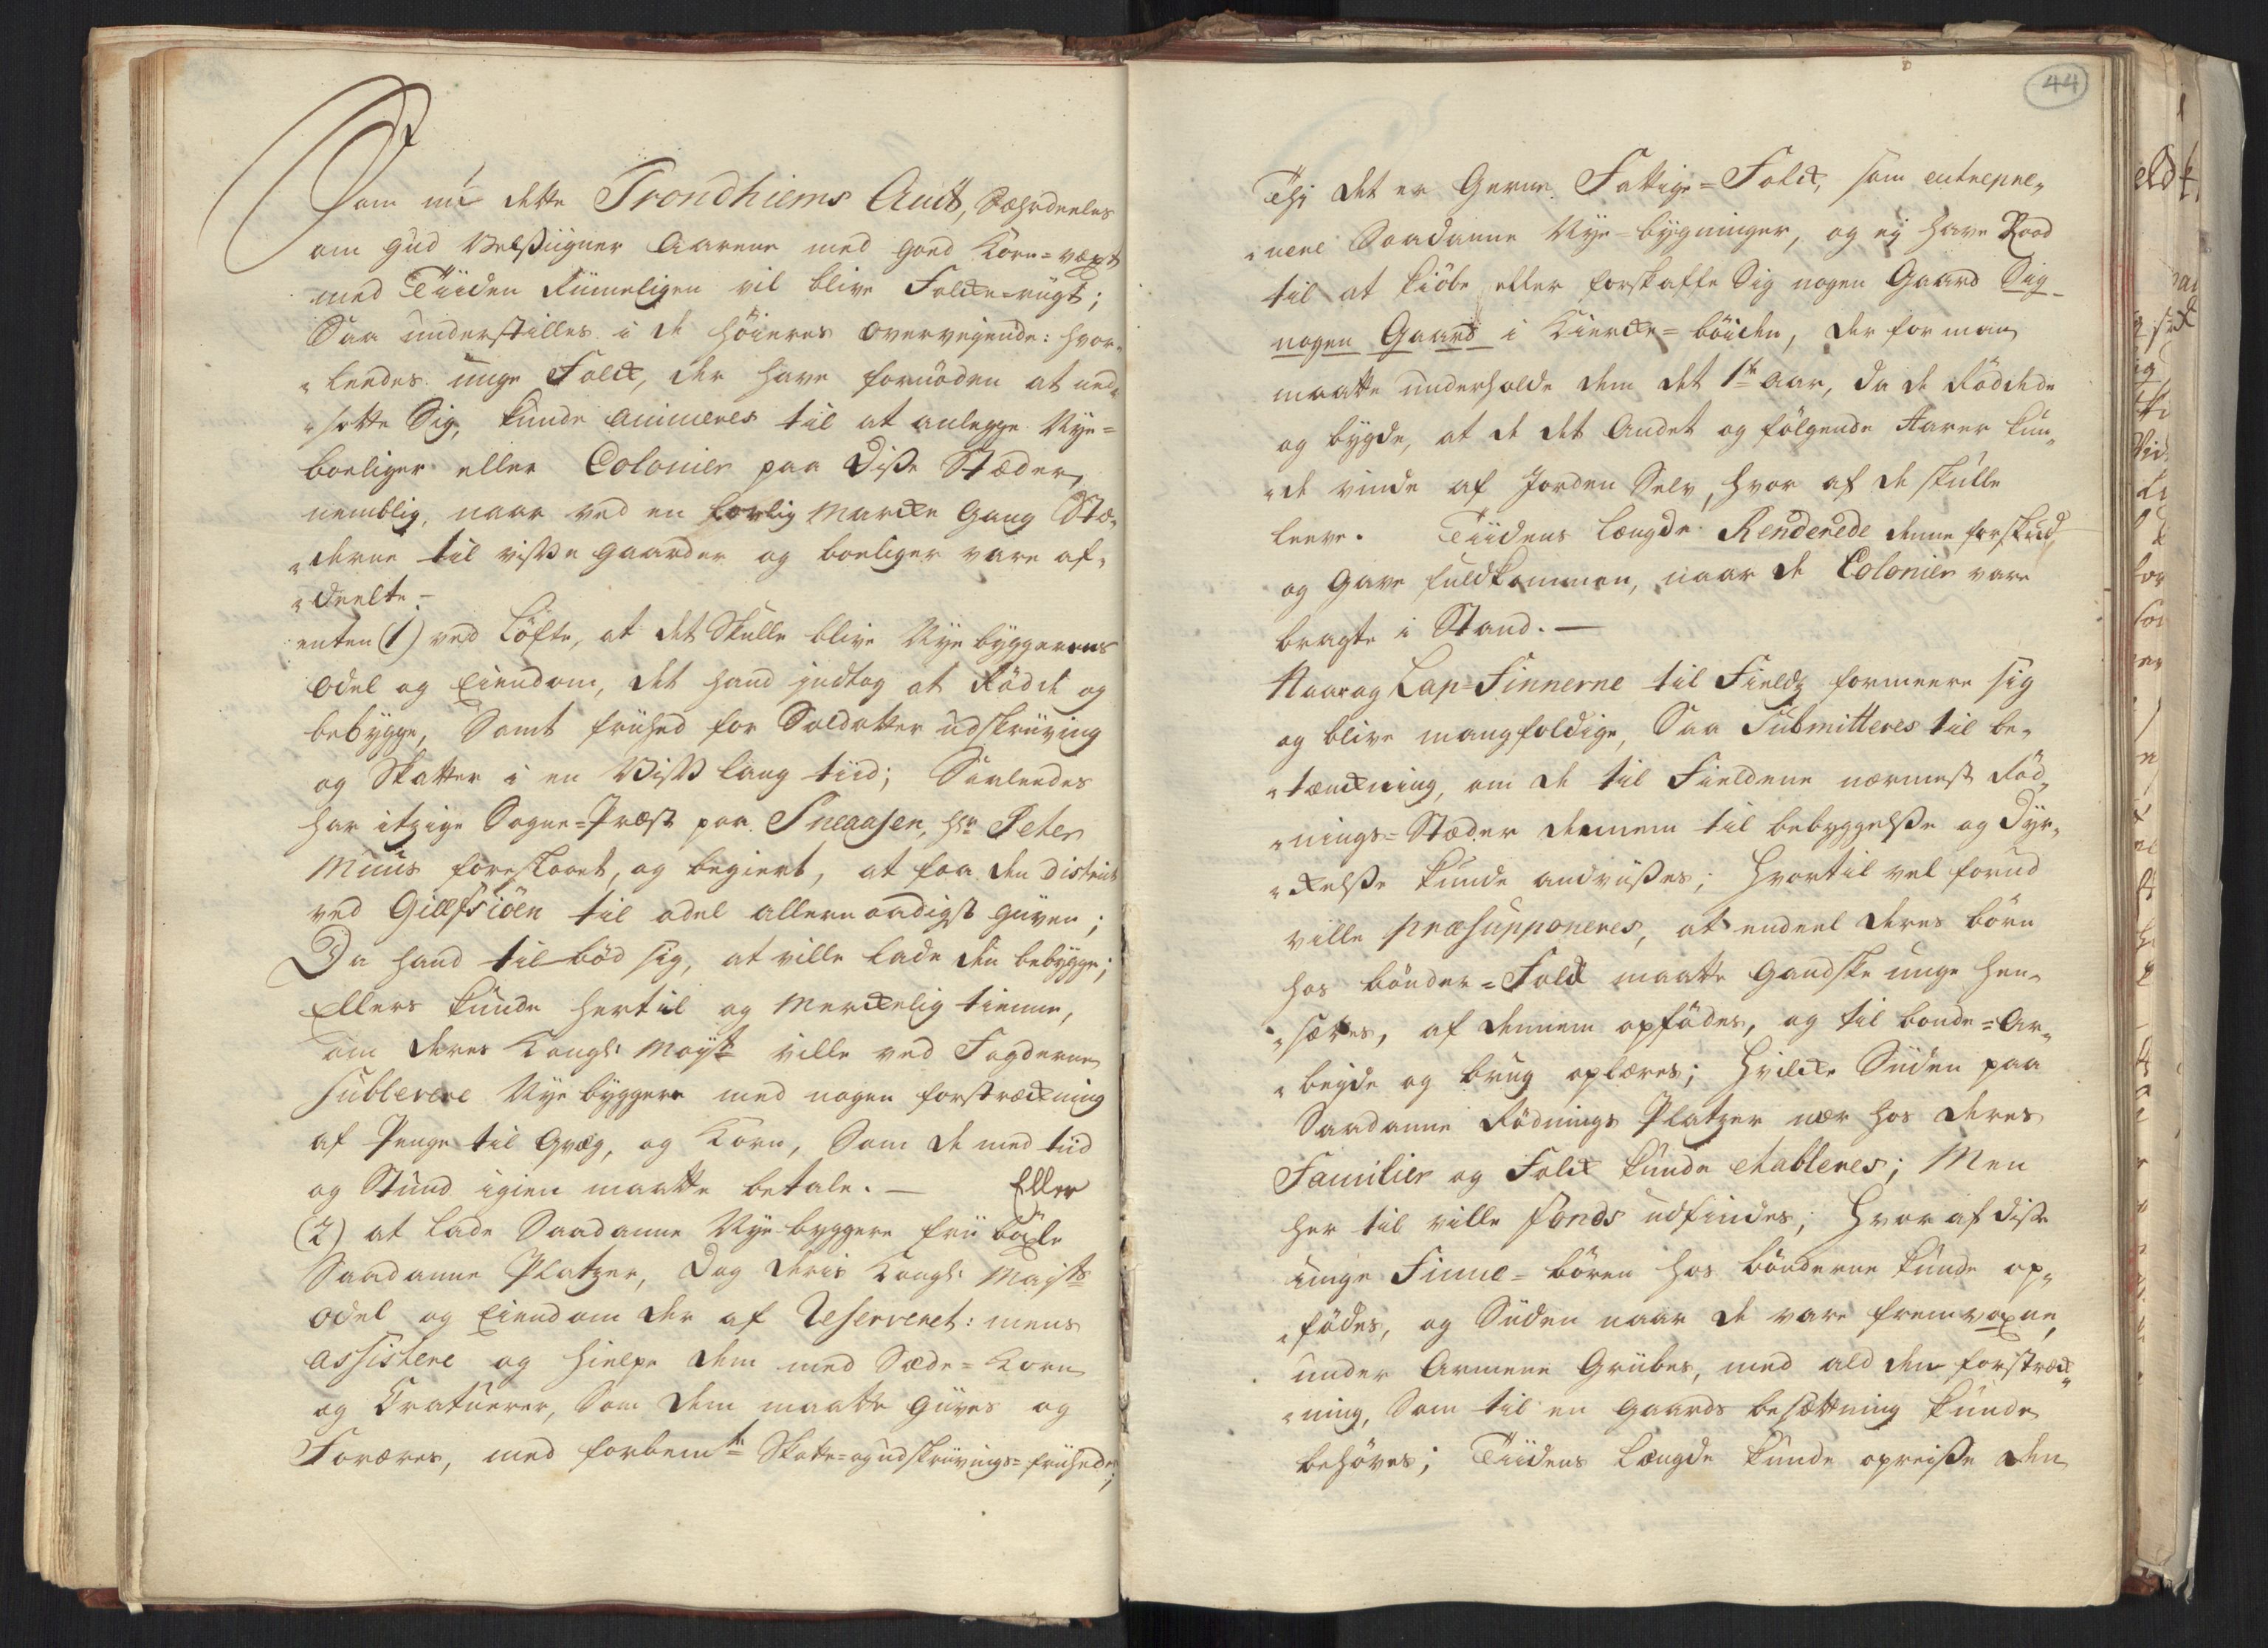 Som nu dette Trondhiems Amt, Sæhrdeeles
om Gud Velsiigner Aarene med goed Korn=væxt
med Tiiden Rimeligen vil blive Folke=riigt;
Saa understilles i de höieres overvejende: hvor„
„leedes unge Folck, der have fornöden at ned„
„sætte Sig, kunde animeres til at anlegge Nye=
boeliger eller Colonier paa Disse Stæder,
nemblig, naar ved en lovlig Marcke Gang Stæ„
„derne til visse Gaarder og boeliger vare af„
„deelte.-
enten (1) ved Löfte, at det Skulle blive Nye byggerens
Odel og Eiendom, det hand indtog at Rödde og
bebygge, Samt friihed for Soldatter udskriiving
og Skatter i en Viss lang tiid; Saaleedes
har itzige Sogne=Præst paa Sneaasen, Hr. Peter
Muus foreslaaet, og begiert, at faa den District
ved Gillesiöen til odel allernaadigst given;
Da hand til böd sig, at ville lade den bebygge;
Ellers kunde hertil og Merckelig tienne,
om Deres Kongl: Mayst: ville ved Fogderne
sublevere Nye byggere med nogen forstræckning
af Penge til Qvæg, og Korn, Som de med tiid
og Stund igien maatte betale. — Eller
(2) at lade Saadanne Nye byggere frii böxle
Saadanne Platzer, Dog Deris Kongl: Mayst:
Odel og Eiendom der af Reserveret: mens
assistere og hielpe dem med Sæde=Korn
og Creatuerer, Som dem maatte Giives og
Foræres, med forbemte Skatte=og udskriivings=friiheder;
44
Thj det er Gerne Fattige=Folck, som entrepre„
„nere Saadanne Nye=bygninger, og ej have Raad
til at kiöbe eller forskaffe Sig nogen Gaard Sig
nogen Gaard i Kiercke=böiden, der for man
maatte underholde dem det 1ste Aar, da de Röddede
og bygde, at de det Andet og fölgende Aarer kun„
„de vinde af Jorden Selv, hvor af de skulle
leeve. Tiidens Længde Renderede denne forskud,
og Gave fuldkommen, naar de Colonier vare
bragte i Stand. —
Naar og Lap=Finnerne til Fields formeere sig
og blive mangfoldige, Saa Submitteres til be„
„tænckning, om de til Fieldene nærmest Röd„
„nings=Stæder dennem til bebyggelsse og Dyr„
„ckelsse kunde andviises; Hvortil vel forud
ville præsupponeres, at endeel deres börn
hos bönder=Folck maatte Gandske unge hen„
„sættes, af dennem opfödes, og til bonde=Ar„
„beyde og brug oplæres; Hvilcke Siiden paa
Saadanne Rödnings Platzer nær hos deres
Familier og Folck kunde etableres; Men
her til ville fonds udfindes, hvor af disse
unge Finne=bören hos bönderne kunde op„
„födes, og Siiden naar de vare fremvoxne,
under Armene Griibes, med ald den forstræck„
„ning, Som til en Gaards besættning kunde
behöves; Tiidens Længde kunde opreisse den